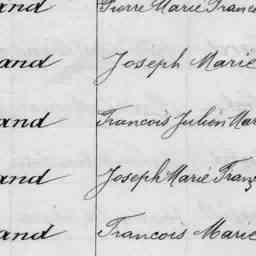 and Pierre Marie Franc
and Joseph Marie
and Francois Julien Mar
and Joseph Marie Franç
and Francois Marie